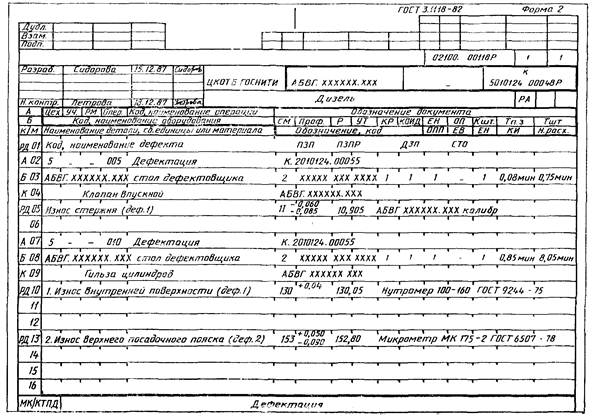 ГОСТ 3.1118-82 Форма 2
Дубл.
Взам.
Подп.
02100. 00118Р 1 1
Разраб. Сидорова 15.12.87 Сидоръ
ЦКОТБ ГОСНИТИ АБВГ.XXXXXX.XXX – К 5010124.00048Р
Н.контр. Петрова 18.12.87
Дизель РА
А Цех УЧ. РМ Опер. Код, наименование операции Обозначение документа
Б Код, наименование оборудования СМ Проф. Р УТ КР КОИД ЕН ОП Кшт. Тп.з Тшт
К/М Наименование детали, сб.единицы или материала Обозначение, код ОПП ЕВ ЕН КИ Н.расх.
РД 01 Код, наименование дефекта ПЗП ПЗПР ДЗП СТО
А 02 5 – – 005 Дефектация К.2010124.00055
Б 03 АБВГ.XXXXXX.XXX стол дефектовщика 2 XXXXX XXX XXXX 1 1 – 1 0,08мин 0,75мин
К 04 Клапан впускной АБВГ.XXXXXX.XXX
РД 05 Износ стержня (деф.1) 11 -0,060 -0,085 10,905 АБВГ XXXXXX.XXX калибр
06
А 07 5 – – 010 Дефектация К.2010124.00055
Б 08 АБВГ.XXXXXX.XXX стол дефектовщика 2 XXXXX XXX XXXX 1 1 – 1 0,85мин 8,05мин
К 09 Гильза цилиндров АБВГ XXXXXX XXX
РД 10 1. Износ внутренней поверхности (деф.1) 130 +0,04 130,05 Нутромер 100-160 ГОСТ 9244-75
11
12
РД 13 2. Износ верхнего посадочного пояска (деф.2) 153 +0,050 -0,090 152,80 Микрометр МК 175-2 ГОСТ 6507-78
14
15
16
МК/КТПД Дефектация